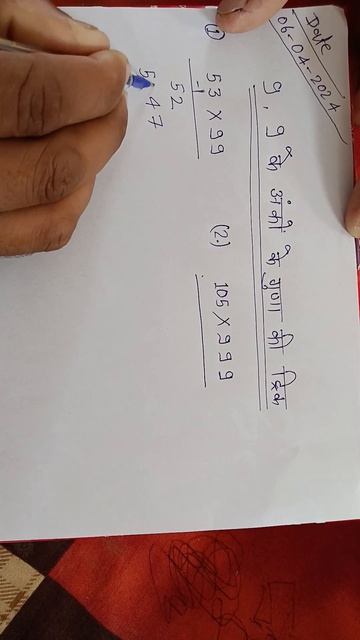 Date
06-04-2024
9, 9 के अंको के गुणा की ट्रिक
① 53 × 99
-1
52
5247
(2.) 105 × 999